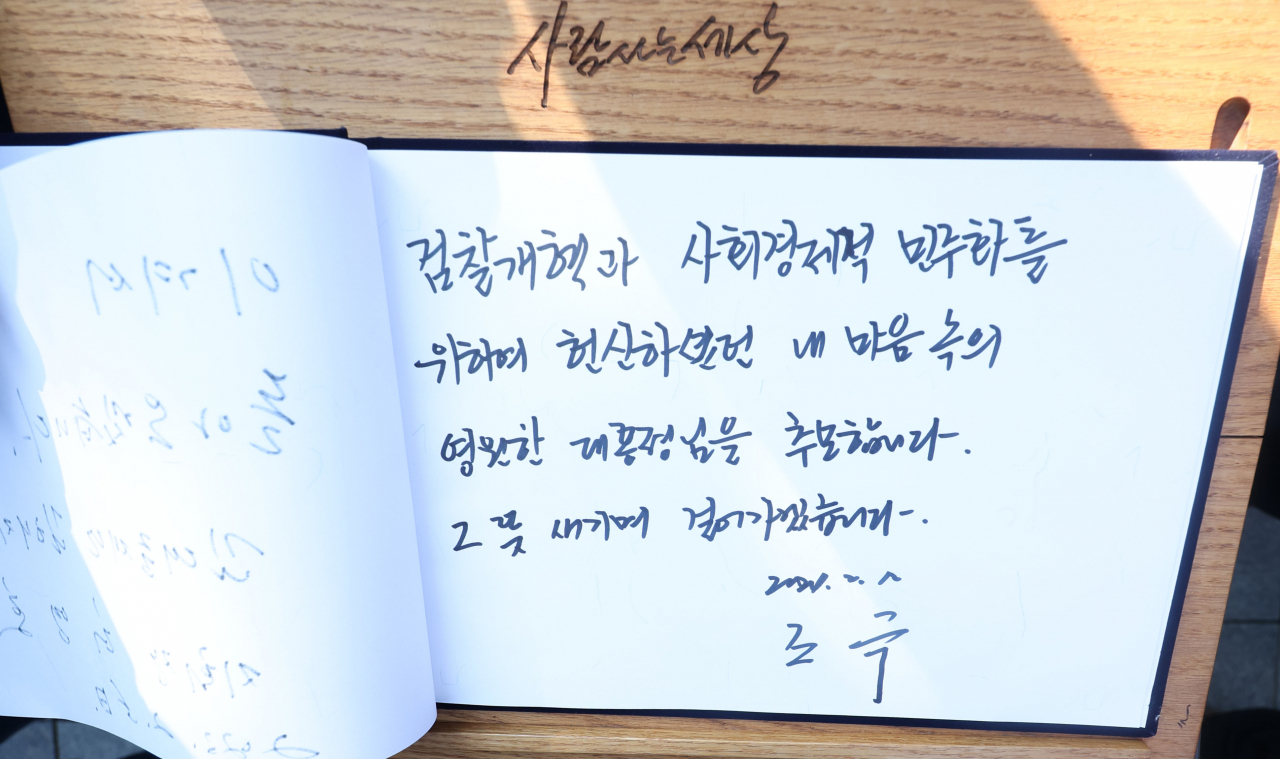 사람사는세상
검찰개혁과 사회경제적 민주화를
위하여 헌신하셨던 내 마음 속의
영원한 대통령님을 추모합니다.
그 뜻 새기며 걸어가겠습니다.
조국